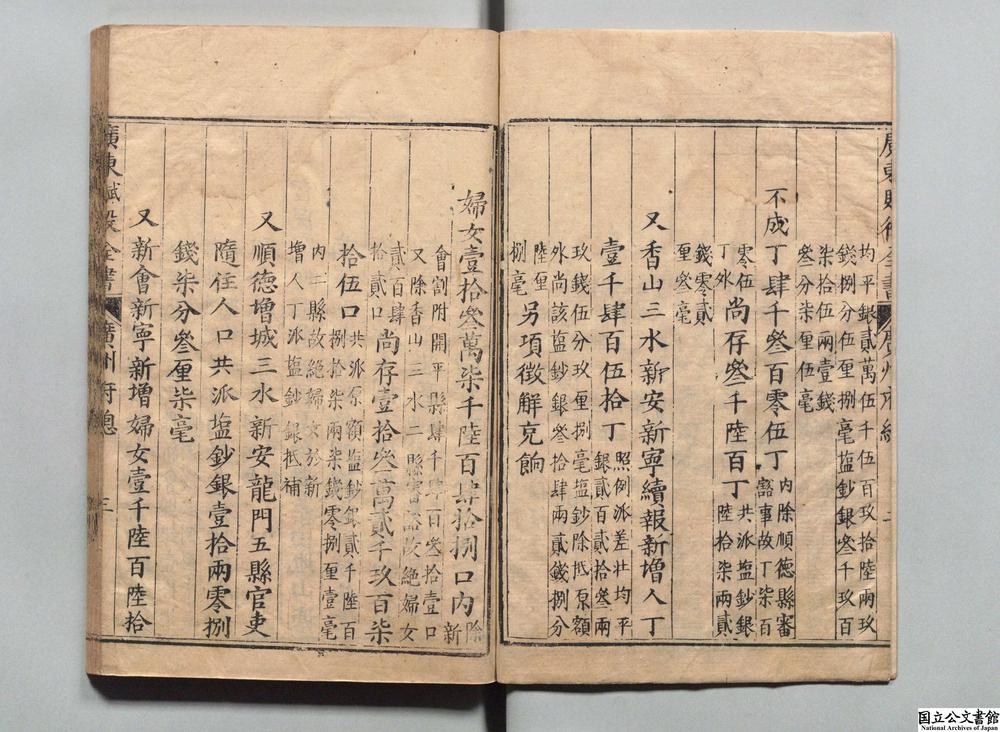 廣東賦役全書 廣州府總 二
均平銀貳萬伍千伍百玖拾陸兩玖
錢捌分伍厘捌毫塩鈔銀叄千玖百
柒拾伍兩壹錢
叄分柒厘伍毫
不成丁肆千叄百零伍丁
內除順德縣審
豁事故丁柒百
零伍
丁外
尚存叄千陸百丁
共派塩鈔銀
陸拾柒兩貳
錢零貳
厘叄毫
又香山三水新安新寧續報新增人丁
壹千肆百伍拾丁
照例派差壯均平
銀貳百貳拾叄兩
玖錢伍分玖厘捌毫塩鈔除抵原額
外尚該塩鈔銀叄拾肆兩貳錢捌分
陸厘
捌毫
另項徵解充餉
婦女壹拾叄萬柒千陸百肆拾捌口內
除
新
會割附開平縣肆千肆百叄拾壹口
又除香山三水二縣審豁故絕婦女
貳百肆
拾貳口
尚存壹拾叄萬貳千玖百柒
拾伍口
共派原額塩鈔銀貳千陸百
捌拾柒兩柒錢零捌厘壹毫
內二縣故絕婦女於新
增人丁派塩鈔銀抵補
又順德增城三水新安龍門五縣官吏
隨任人口共派塩鈔銀壹拾兩零捌
錢柒分叄厘柒毫
又新會新寧新增婦女壹千陸百陸拾
廣東賦役全書 廣州府總 三
国立公文書館
National Archives of Japan